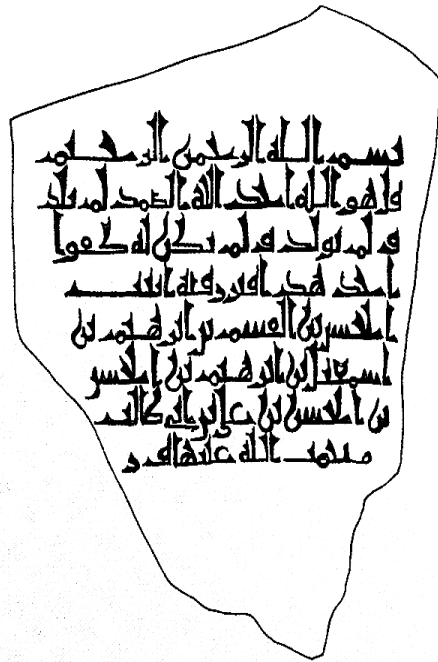 بسم الله الرحمن الرحيم
قل هو الله احد الله الصمد لم يلد
و لم يولد و لم يكن له كفوا
احد هدا قبر رقية ابنت
الحسن بن القسم بن ابرهيم بن
اسمعيل بن ابرهيم بن الحسن
بن الحسن بن علي بن ابي طالب
الله